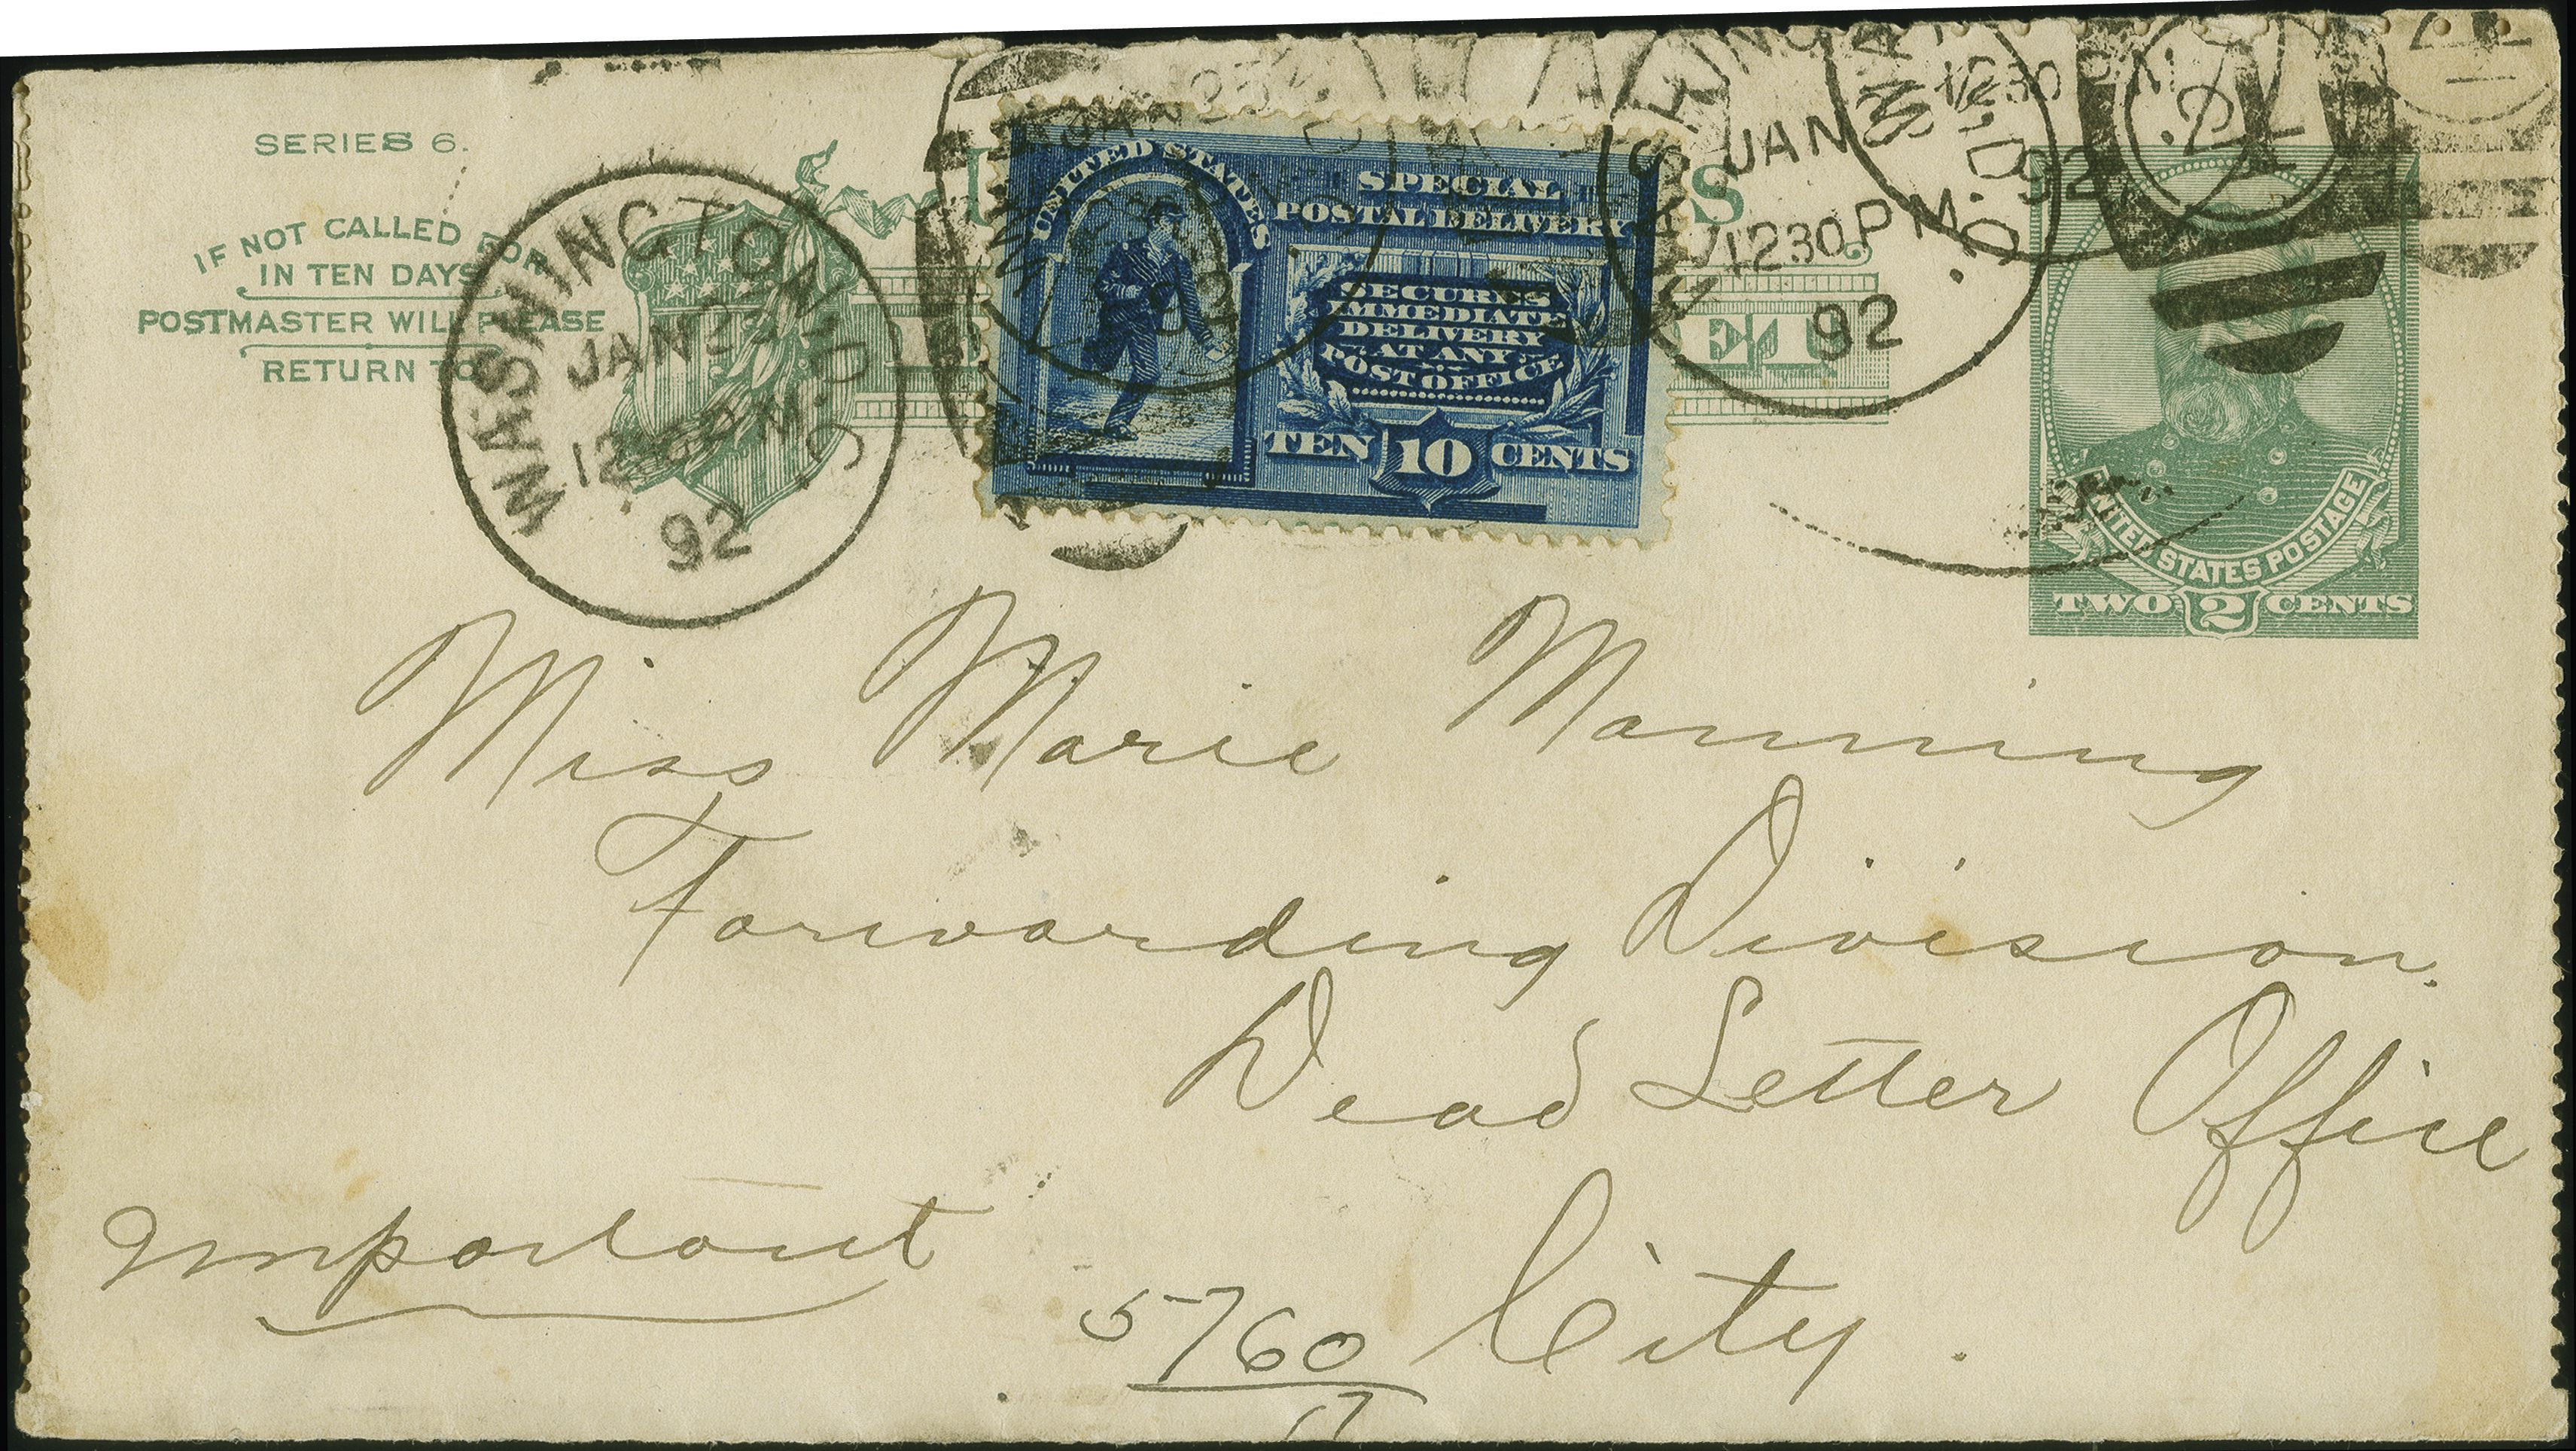 SERIES 6.
IF NOT CALLED FOR
IN TEN DAYS
POSTMASTER WILL PLEASE
RETURN TO
WASHINGTON, D.C.
JAN 23
92
U S
UNITED STATES
SPECIAL
POSTAL DELIVERY
SECURES
IMMEDIATE
DELIVERY
AT ANY
POST OFFICE
TEN 10 CENTS
92
JAN
1230 PM
92
1230 PM
92
UNITED STATES POSTAGE
TWO 2 CENTS
Miss Marie Manning
Forwarding Division.
Dead Letter Office
City.
Important
5760
17